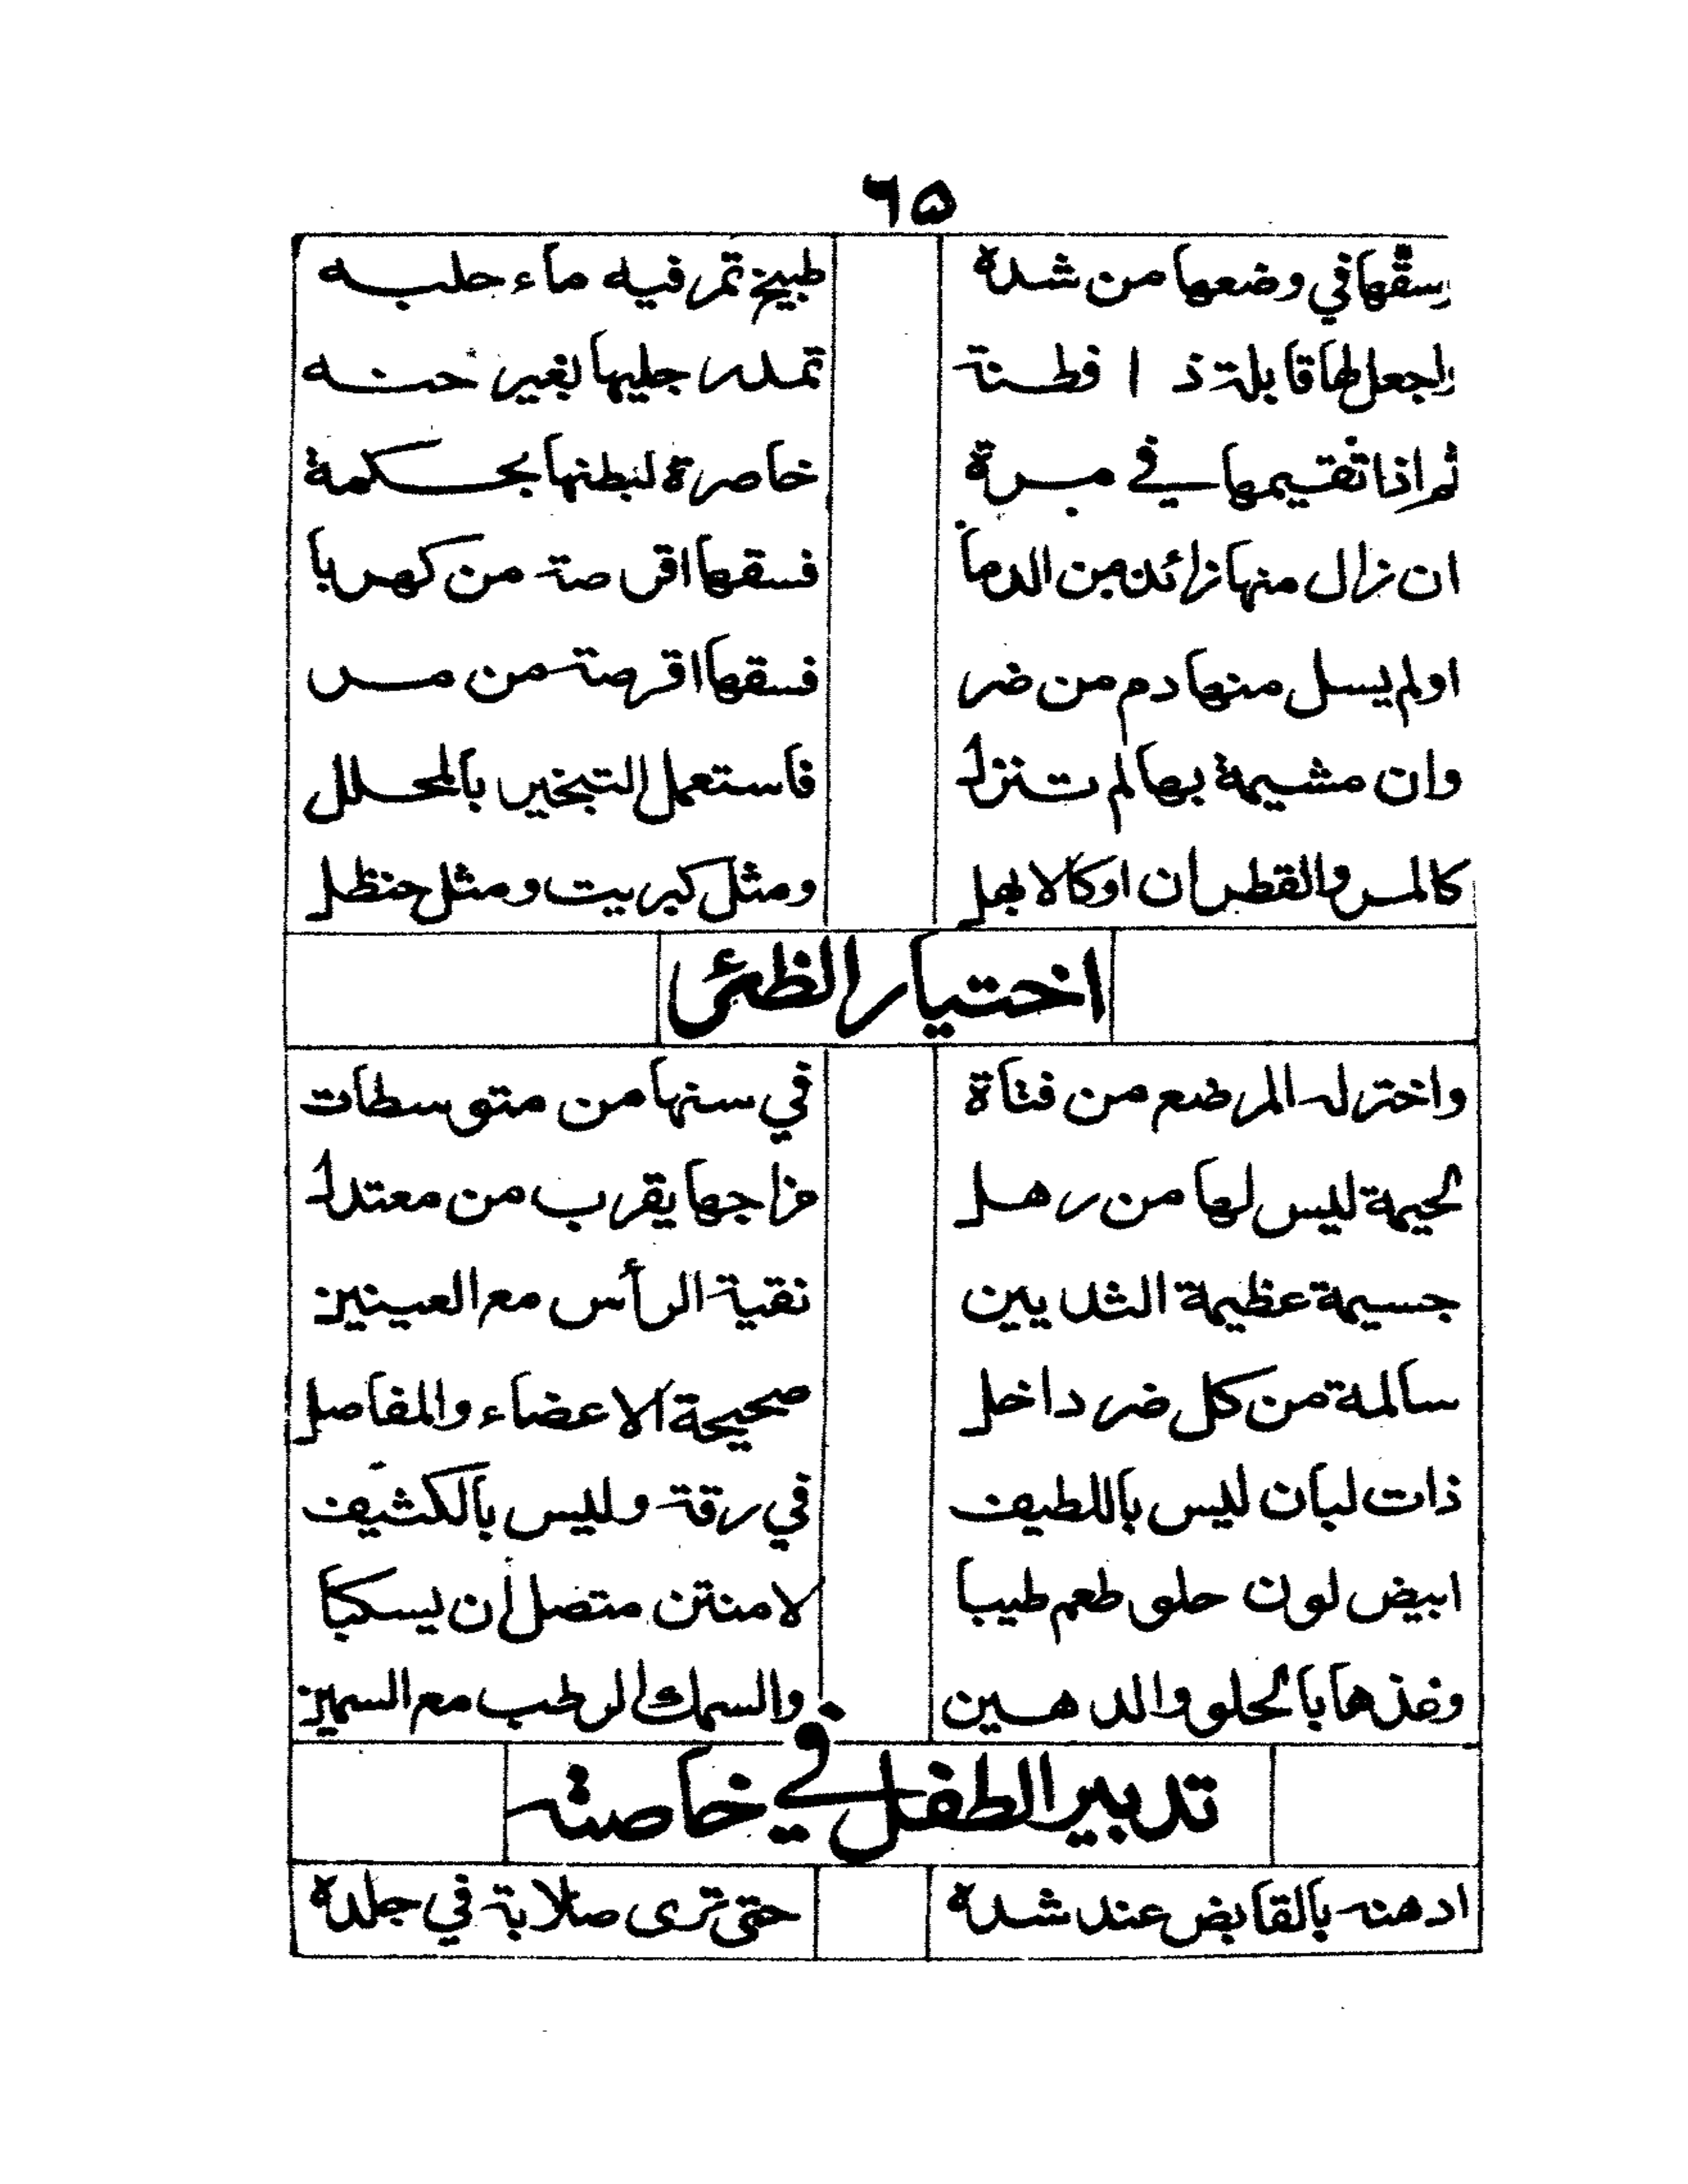 ٦٥
وسقها في وضعها من شدة طبيخ تمر فيه ماء حلبه
واجعل لها قابلة ذا فطنة تمد رجليها بغير حنه
ثم اذا تقيمها في مرة خاصرة لبطنها بحكمة
ان زال منها زائد من الدما فسقها اقرصة من كهربا
اولم يسل منها دم من ضر فسقها اقرصة من مر
وان مشيمة بها لم تنزل فاستعمل التبخير بالمحلل
كالمر والقطران اوكالابهل ومثل كبريت ومثل حنظل
اختيار الظئر
واختر له المرضع من فتاة في سنها من متوسطات
لحيمة ليس لها من رهل مزاجها يقرب من معتدل
جسيمة عظيمة الثديين نقية الرأس مع العينين
سالمة من كل ضر داخل صحيحة الاعضاء والمفاصل
ذات لبان ليس باللطيف في رقة وليس بالكثيف
ابيض لون حلو طعم طيبا لا منتن متصل أن يسكبا
وغذها بالحلو والدهين والسمك الرطب مع السمين
تدبير الطفل في خاصته
ادهنه بالقابض عند شدة حتى ترى صلابة في جلدة